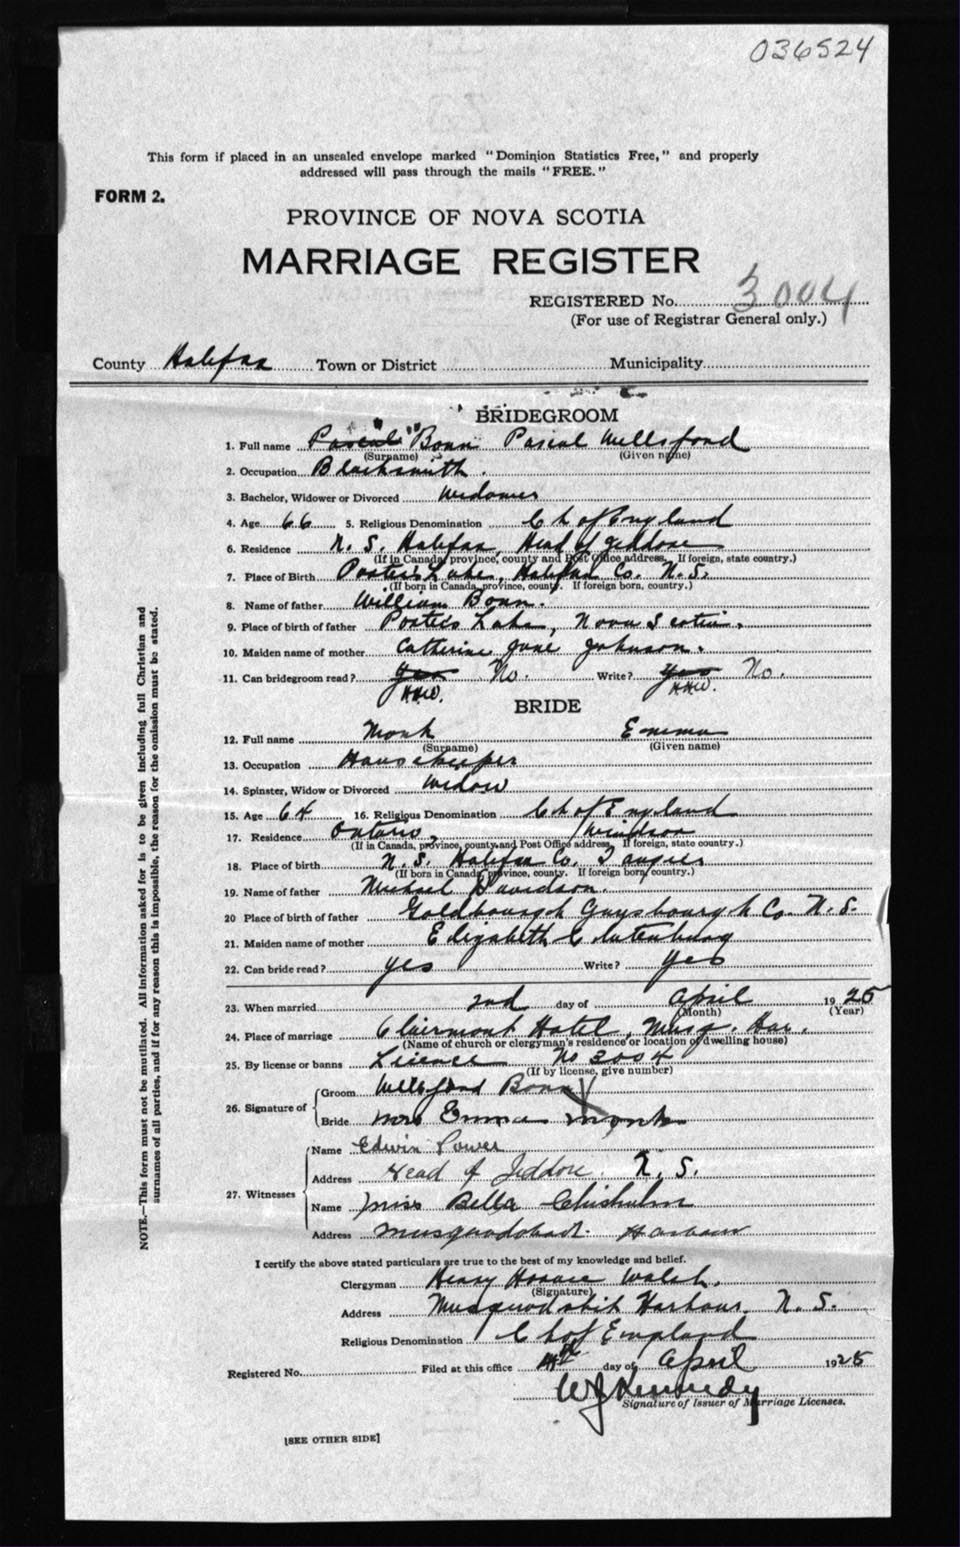 036524
This form if placed in an unsealed envelope marked "Dominion Statistics Free," and properly
addressed will pass through the mails "FREE."
FORM 2.
PROVINCE OF NOVA SCOTIA
MARRIAGE REGISTER
REGISTERED No. 3004
(For use of Registrar General only.)
County Halifax Town or District Municipality
BRIDEGROOM
1. Full name Pascal "Bonn Pascal Wellsford
(Surname) (Given name)
2. Occupation Blacksmith.
3. Bachelor, Widower or Divorced Widower
4. Age 66 5. Religious Denomination Ch of England
6. Residence N. S. Halifax, Head of Jeddore
(If in Canada, province, county and Post Office address. If foreign, state country.)
7. Place of Birth Porter's Lake, Halifax Co. N.S.
(If born in Canada, province, county. If foreign born, country.)
8. Name of father William Bonn.
9. Place of birth of father Porter's Lake, Nova Scotia.
10. Maiden name of mother Catherine Jane Johnson.
11. Can bridegroom read? Yes No. Write? Yes No.
HHW. HHW.
BRIDE
12. Full name Monk Emma
(Surname) (Given name)
13. Occupation Housekeeper
14. Spinster, Widow or Divorced Widow
15. Age 64 16. Religious Denomination Ch of England
17. Residence Ontario, Windsor
(If in Canada, province, county and Post Office address. If foreign, state country.)
18. Place of birth N. S. Halifax Co. Tangier
(If born in Canada, province, county. If foreign born, country.)
19. Name of father Michael Davidson.
20 Place of birth of father Goldbourgh Guysbourgh Co. N.S.
21. Maiden name of mother Elizabeth
22. Can bride read? yes Write? yes
23. When married 2nd day of April 1925
(Month) (Year)
24. Place of marriage Clairmont Hotel, Musq. Har.
(Name of church or clergyman's residence or location of dwelling house)
25. By license or banns Licence No 3004
(If by license, give number)
26. Signature of
Groom Wellsford Bonn X
Bride Mrs Emma Monk
27. Witnesses
Name Edwin Power
Address Head of Jeddore. N. S.
Name Miss Bella Chisholm
Address Musquodoboit Harbour
I certify the above stated particulars are true to the best of my knowledge and belief.
Clergyman Henry Horace Walsh.
(Signature)
Address Musquodoboit Harbour, N. S.
Religious Denomination Ch of England
Registered No. Filed at this office 4th day of April 1925
W J Kennedy
Signature of Issuer of Marriage Licenses.
[SEE OTHER SIDE]
NOTE.—This form must not be mutilated. All information asked for is to be given including full Christian and
surnames of all parties, and if for any reason this is impossible, the reason for the omission must be stated.